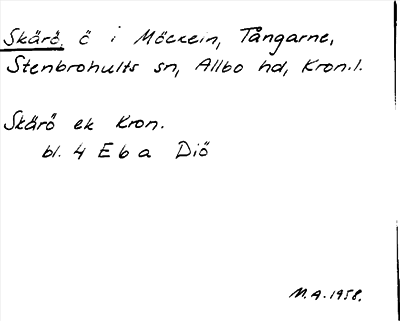 Skärö, ö i Möckeln, Tångarne,
Stenbrohults sn, Allbo hd, Kron.l.
Skärö ek Kron.
bl. 4 E b a Diö
M.A. 1958.